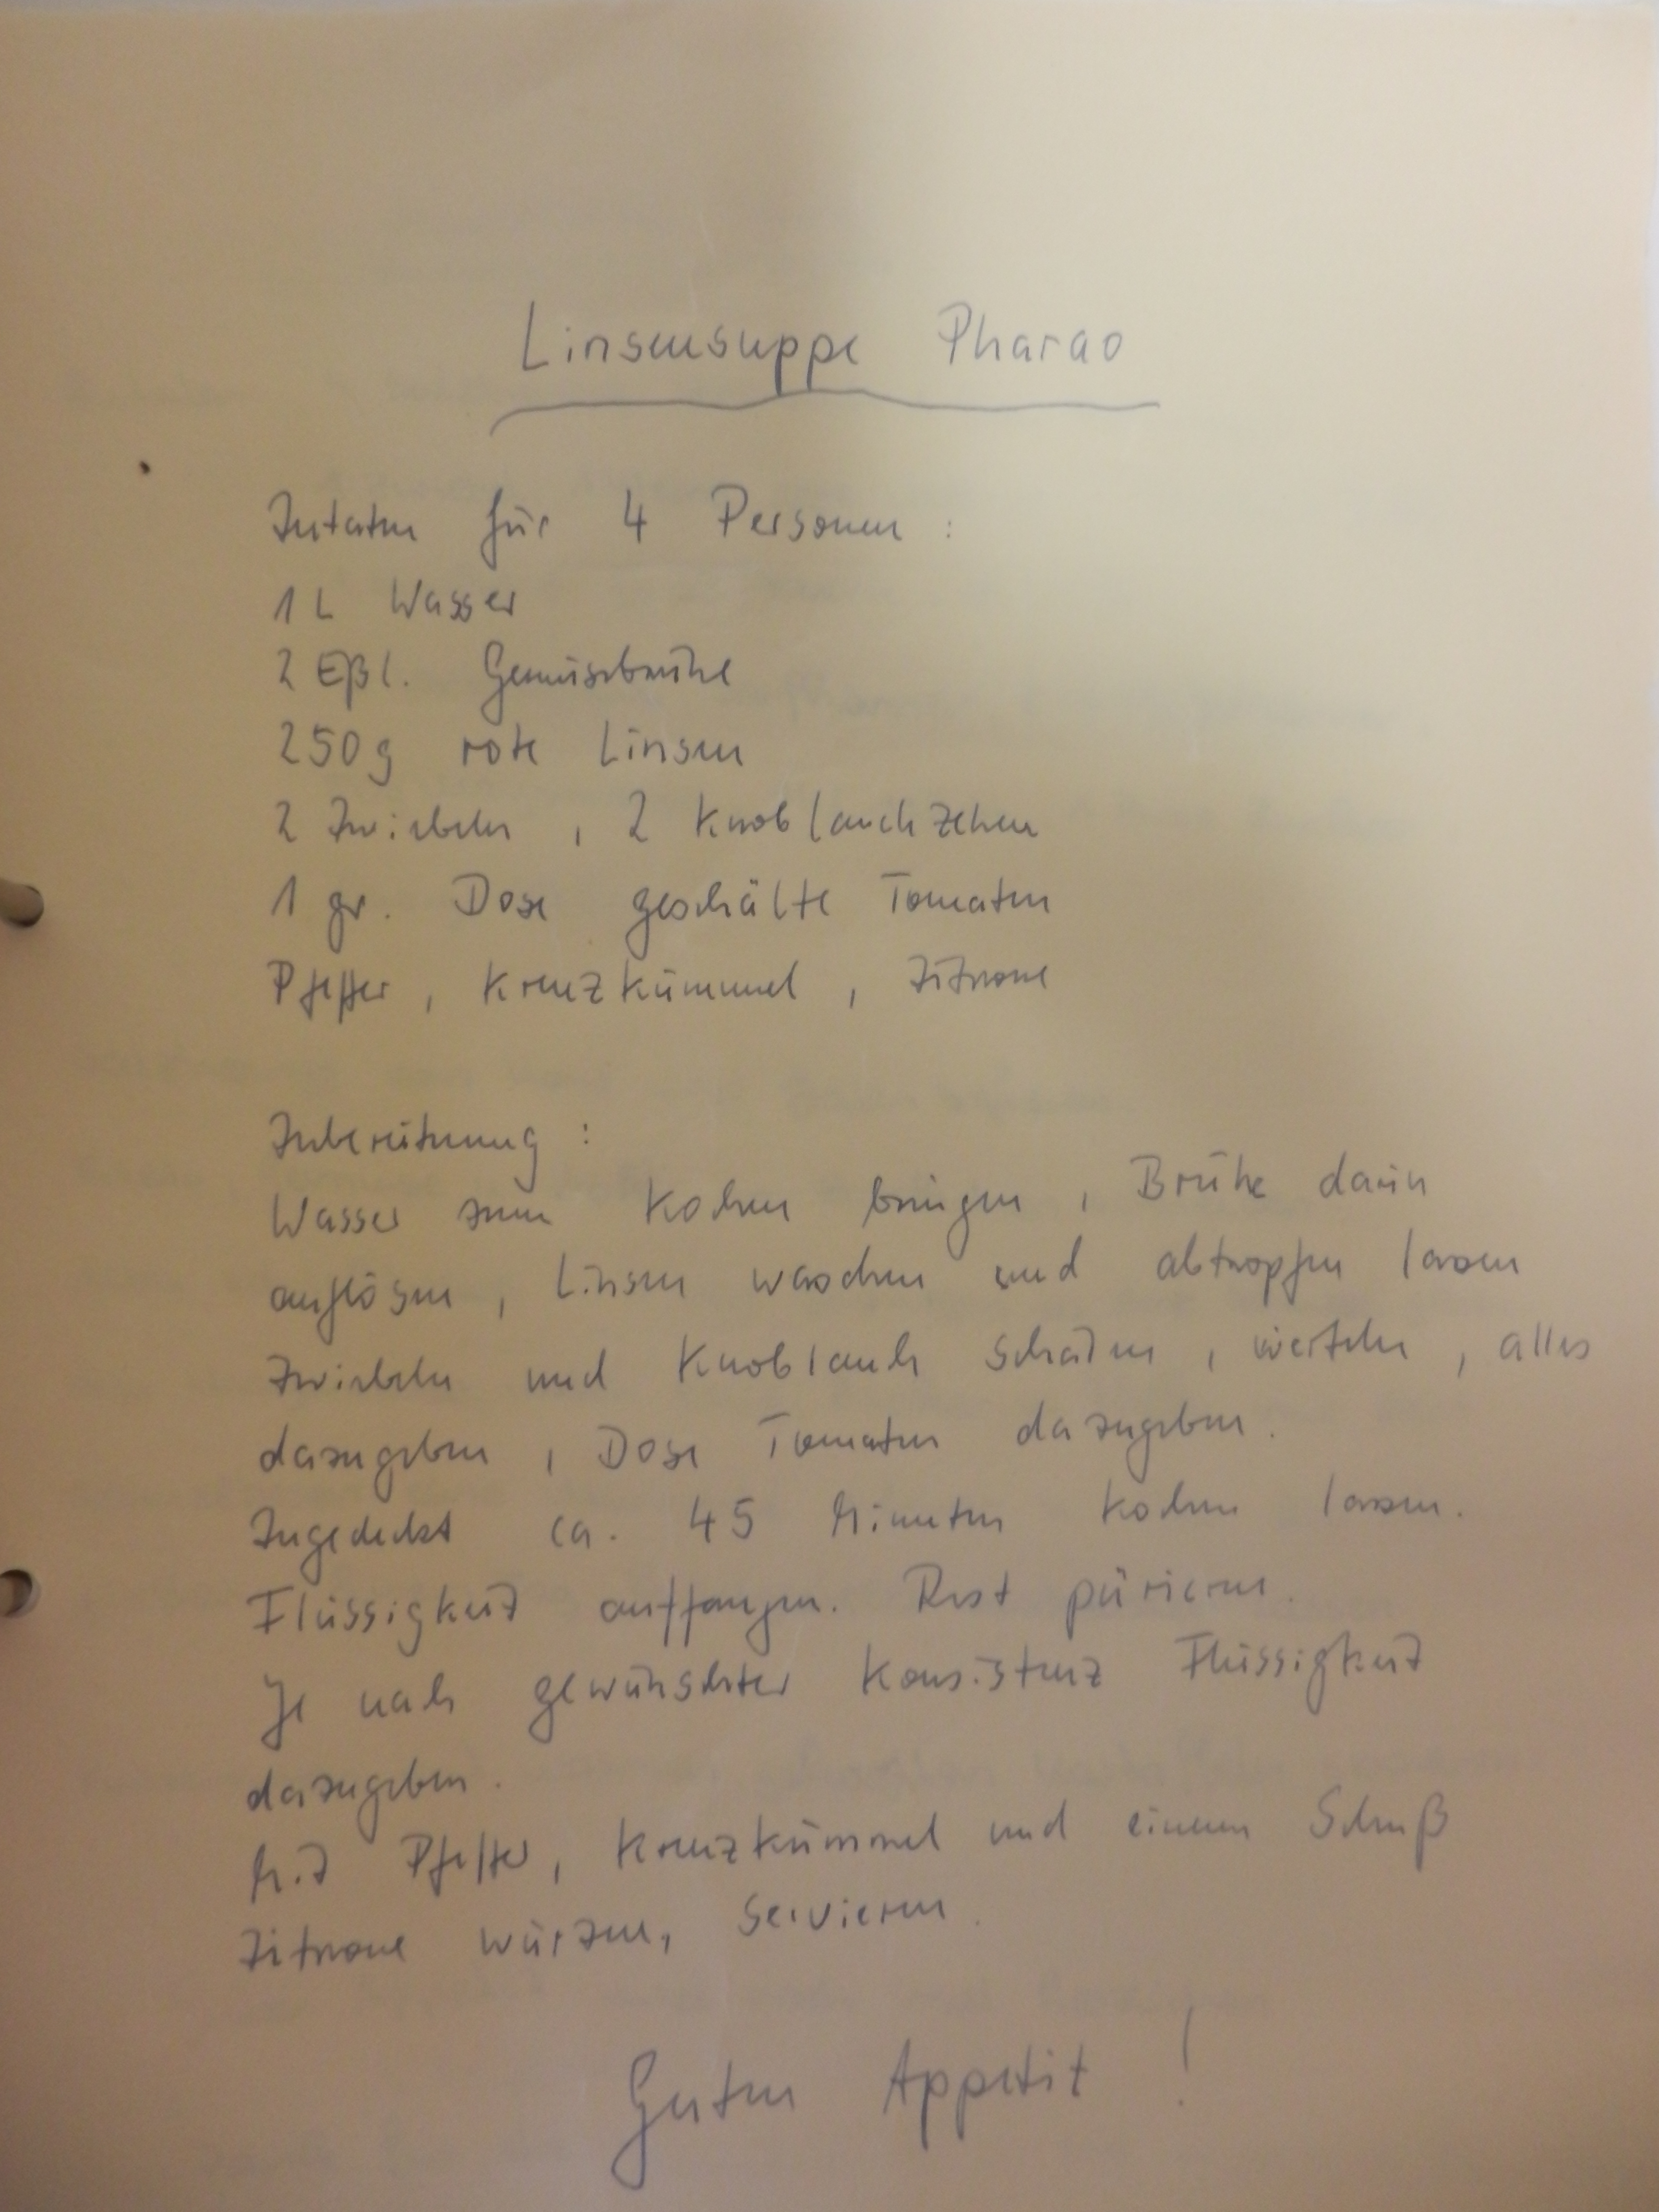 Linsensuppe Pharao
Zutaten für 4 Personen :
1 L Wasser
2 Eßl. Gemüsebrühe
250g rote Linsen
2 Zwiebeln , 2 Knoblauchzehen
1 gr. Dose geschälte Tomaten
Pfeffer , Kreuzkümmel , Zitrone
Zubereitung :
Wasser zum Kochen bringen , Brühe darin
auflösen , Linsen waschen und abtropfen lassen
Zwiebeln und Knoblauch schälen , vierteln , alles
dazugeben , Dose Tomaten dazugeben .
Zugedeckt ca. 45 Minuten kochen lassen.
Flüssigkeit auffangen. Rest pürieren.
Je nach gewünschter Konsistenz Flüssigkeit
dazugeben .
Mit Pfeffer, Kreuzkümmel und einem Schuß
Zitrone würzen, servieren .
Guten Appetit !